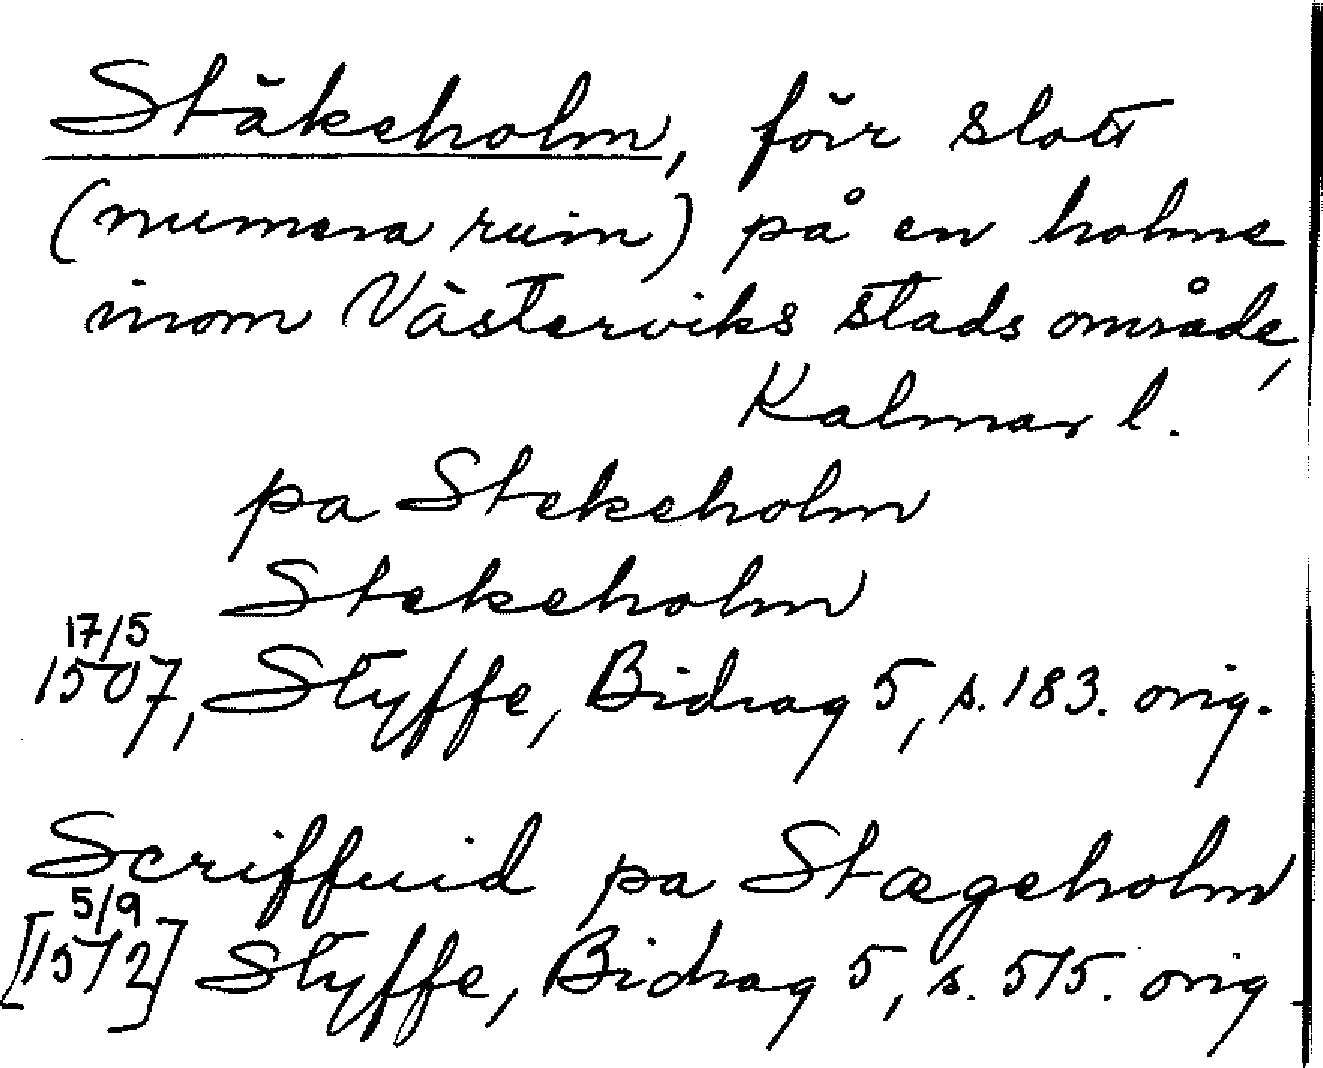 Stäkeholm, förr slott
(numera ruin) på en holme
inom Västerviks stads område,
Kalmar l.
pa Stekeholm
Stekeholm
17/5
1507, Styffe, Bidrag 5, s. 183. orig.
Scriffuid pa Stægeholm
5/9
[1512] Styffe, Bidrag 5, s. 515. orig